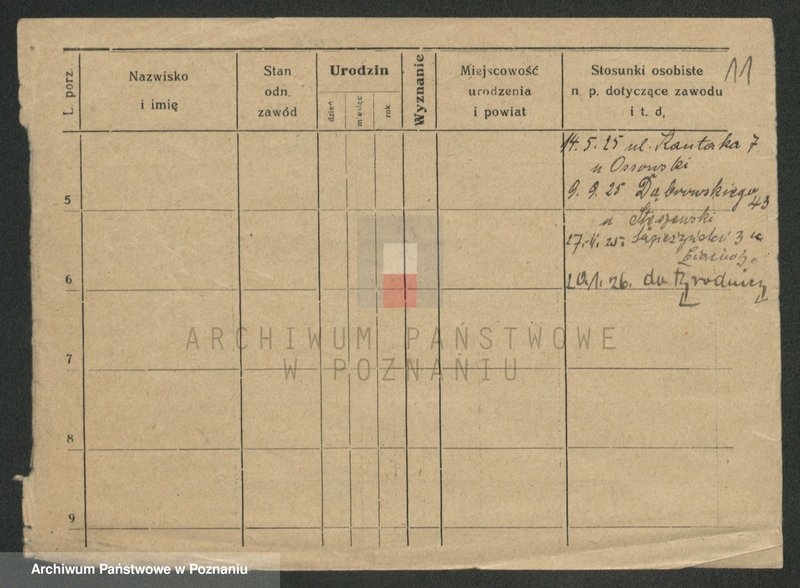 11
L. porz.
Nazwisko
i imię
Stan
odn.
zawód
Urodzin
dzień
miesięc
rok
Wyznanie
Miejscowość
urodzenia
i powiat
Stosunki osobiste
n. p. dotyczące zawodu
i t. d,
14. 5. 25 ul. Kantaka 7
u Ossowski
9. 9. 25 Dąbrowskiego 43
u Stęszewski
27. 25. 3 u
20/1. 26. do
5
6
7
8
9
ARCHIWUM PAŃSTWOWE
W POZNANIU
Archiwum Państwowe w Poznaniu